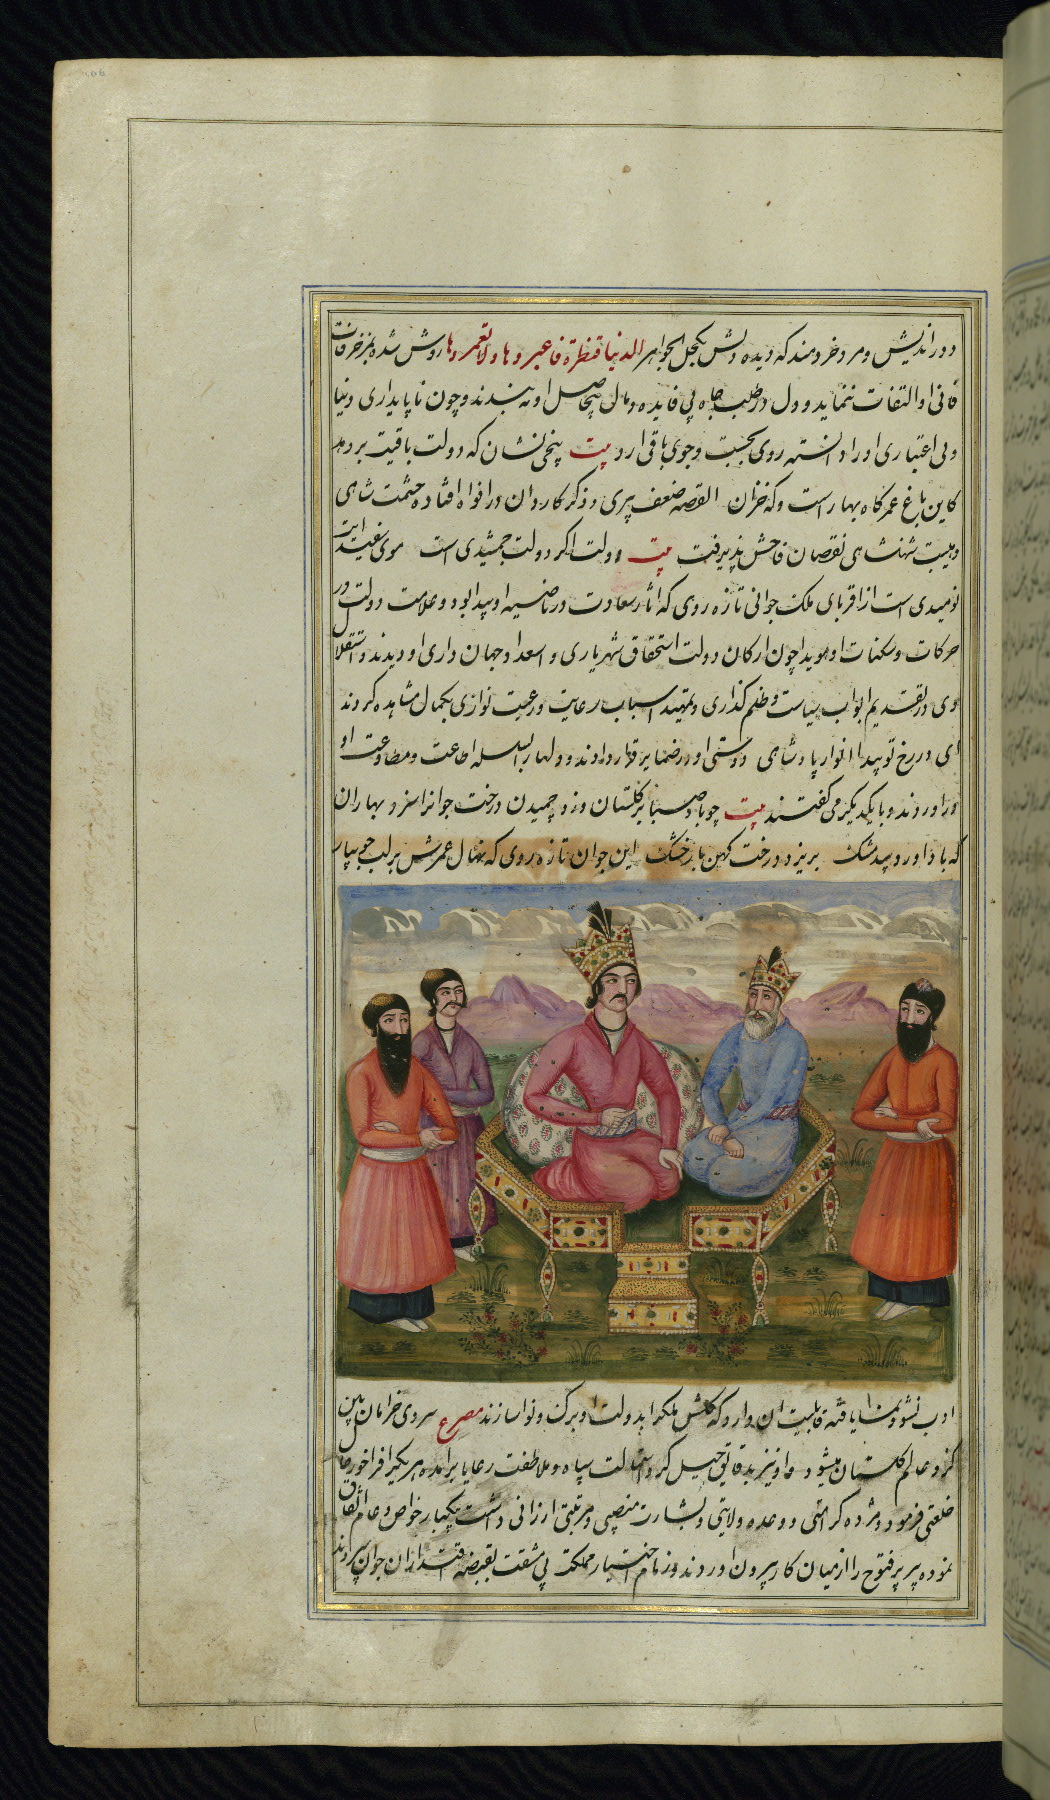 دوراندیش و مرد خردمند که دیده دلش بکحل الجواهر الدنیا قنطرة فاعبروها ولا تعمروها روشن شده بمزخرفات
فانی او التفات ننماید و دل در طلب جاه بی فایده و مال بیحاصل او نه بندند و چون ناپایداری دنیا
و بی اعتباری او را دانسته روی بجست و جوی باقی ارد بیت بیخی نشان که دولت باقیت بر دهد
کاین باغ عمر کاه بهار است و که خزان القصه ضعف پیری و ذکر کاردان در افواه افتاد و حشمت شاهی
و هیبت شهنشاهی نقصان فاحش پذیرفت بیت دولت اکر دولت جمشیدی است موی سفید ایت
نومیدی است از اقربای ملک جوانی تازه روی که اثار سعادت در ناصیه او پیدا بود و علامت دولت در
حرکات و سکنات او هویدا چون ارکان دولت استحقاق شهریاری و استعداد جهان داری او دیدند و استقلال
وی در تقدیم ابواب سیاست و ظلم کذاری و تمهید اسباب رعایت و رعیت نوازی بکمال مشاهده کردند
ای در رخ تو پیدا انوار پادشاهی دوستی او در ضمایر قرار دادند و دلها بسلسله اطاعت و مطاوعت او
در اوردند و با یکدیکر می کفتند بیت چو باد صبا بر کلستان وزد چمیدن درخت جوانرا سزد بهاران
که باد اورد بید مشک بریزد درخت کهن بار خشک این جوان تازه روی که نهال عمرش بر لب جویبار
ادب نشو و نما یافته قابلیت ان دارد که کلشن ملک را بدولت او برک و نوا سازند مصرع سروی خرامان بین
کزو عالم کلستان میشود و او نیز بدقایق حیل کرد استمالت سپاه و ملاطفت رعایا برامده هر یک را فراخور حال
خلعتی فرمود و مژده کرامتی و وعده ولایتی و بشارت منصبی و مرتبتی ارزانی داشت بیکبار خواص و عام اتفاق
نموده پیر پر فتوح را از میان کار بیرون اوردند و زمام اختیار مملکت بی مشقت بقبضه اقتدار ان جوان سپردند